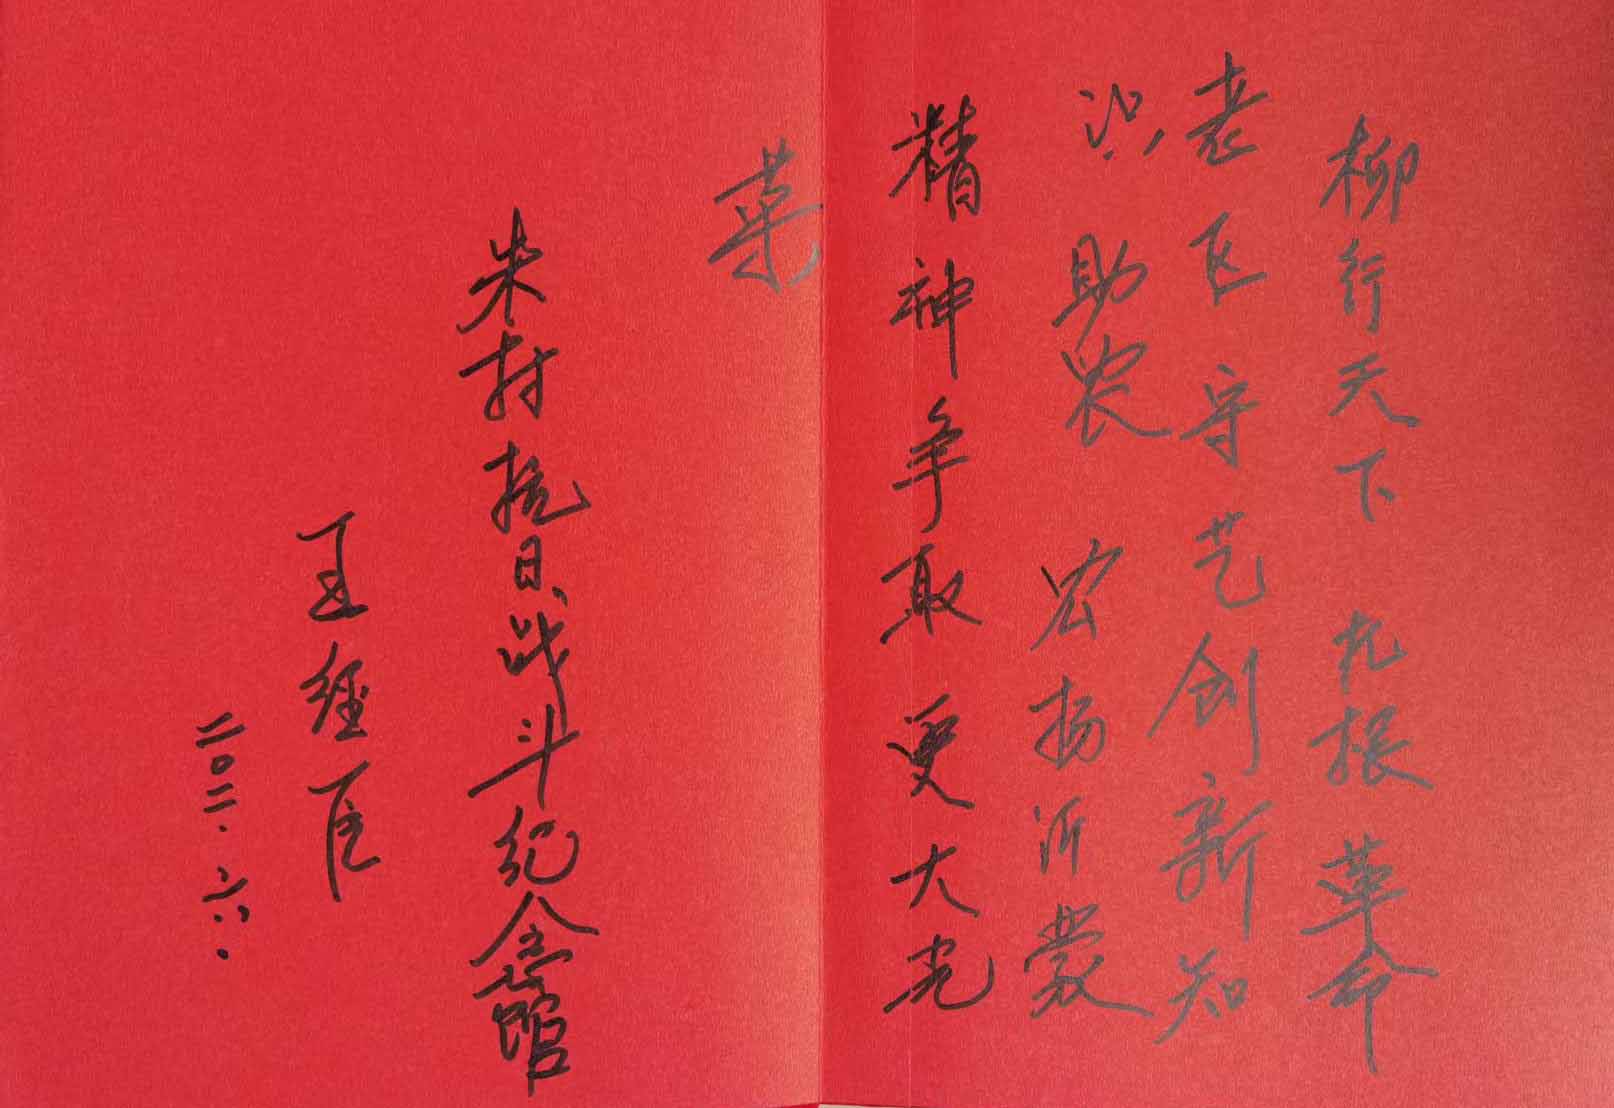 柳行天下 扎根革命
老区守艺创新知
识助农 宏扬沂蒙
精神争取更大光
荣
朱村抗日战斗纪念馆
王经臣
二〇二二.六.